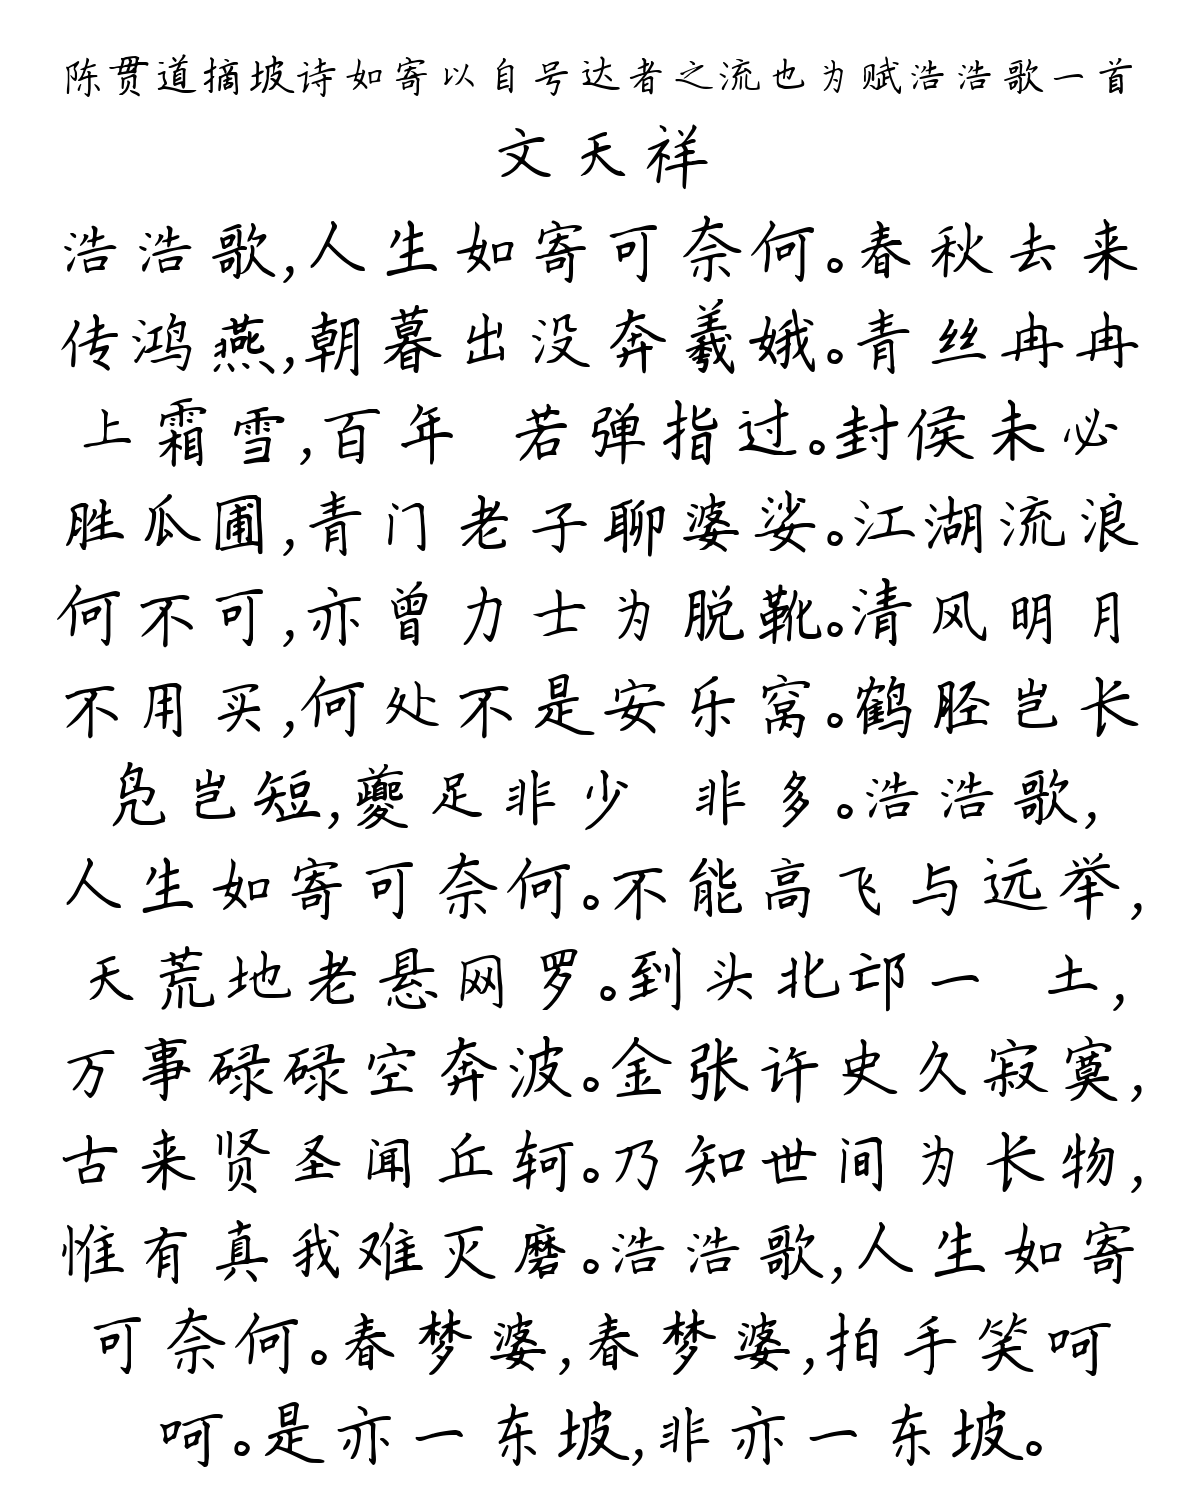 陈贯道摘坡诗如寄以自号达者之流也为赋浩浩歌一首
文天祥
浩浩歌,人生如寄可奈何。春秋去来
传鸿燕,朝暮出没奔羲娥。青丝冉冉
上霜雪,百年 若弹指过。封侯未必
胜瓜圃,青门老子聊婆娑。江湖流浪
何不可,亦曾力士为脱靴。清风明月
不用买,何处不是安乐窝。鹤胫岂长
凫岂短,夔足非少 非多。浩浩歌,
人生如寄可奈何。不能高飞与远举,
天荒地老悬网罗。到头北邙一 土,
万事碌碌空奔波。金张许史久寂寞,
古来贤圣闻丘轲。乃知世间为长物,
惟有真我难灭磨。浩浩歌,人生如寄
可奈何。春梦婆,春梦婆,拍手笑呵
呵。是亦一东坡,非亦一东坡。